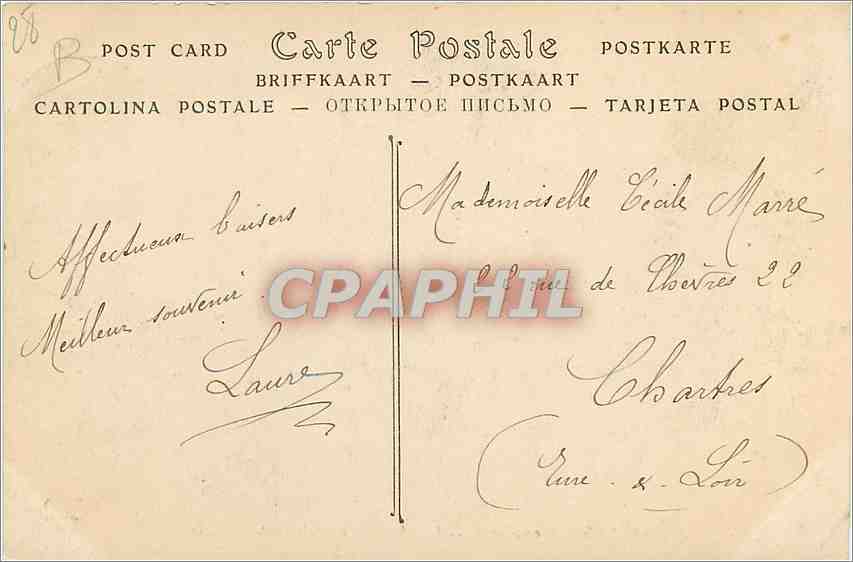 28
B
POST CARD Carte Postale POSTKARTE
BRIFFKAART — POSTKAART
CARTOLINA POSTALE — ОТКРЫТОЕ ПИСЬМО — TARJETA POSTAL
Affectueux baisers
Meilleur souvenir
Laure
Mademoiselle Cécile Marré
22 rue de Chèvres 22
Chartres
(Eure-&-Loir)
CPAPHIL